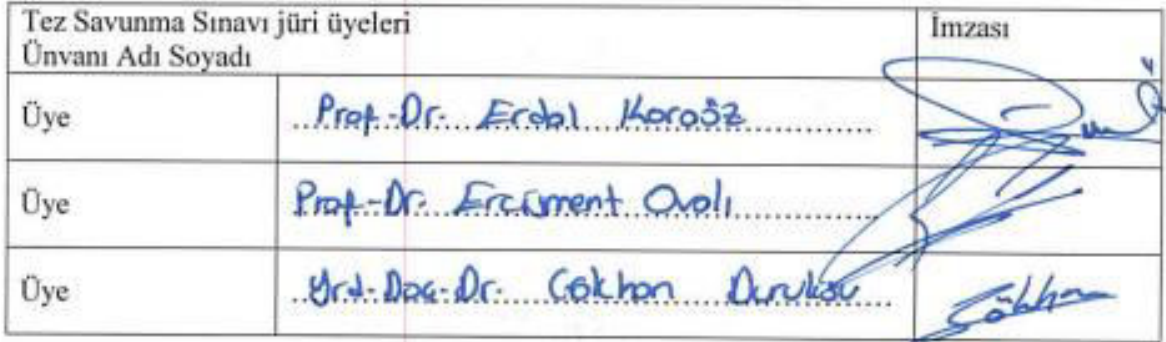 Tez Savunma Sınavı jüri üyeleri
Ünvanı Adı Soyadı
İmzası
Üye
Prof. Dr. Erdal Karaöz
Üye
Prof. Dr. Ercüment Ovalı
Üye
Yrd. Doç. Dr. Gökhan Duruksu
Gökhan